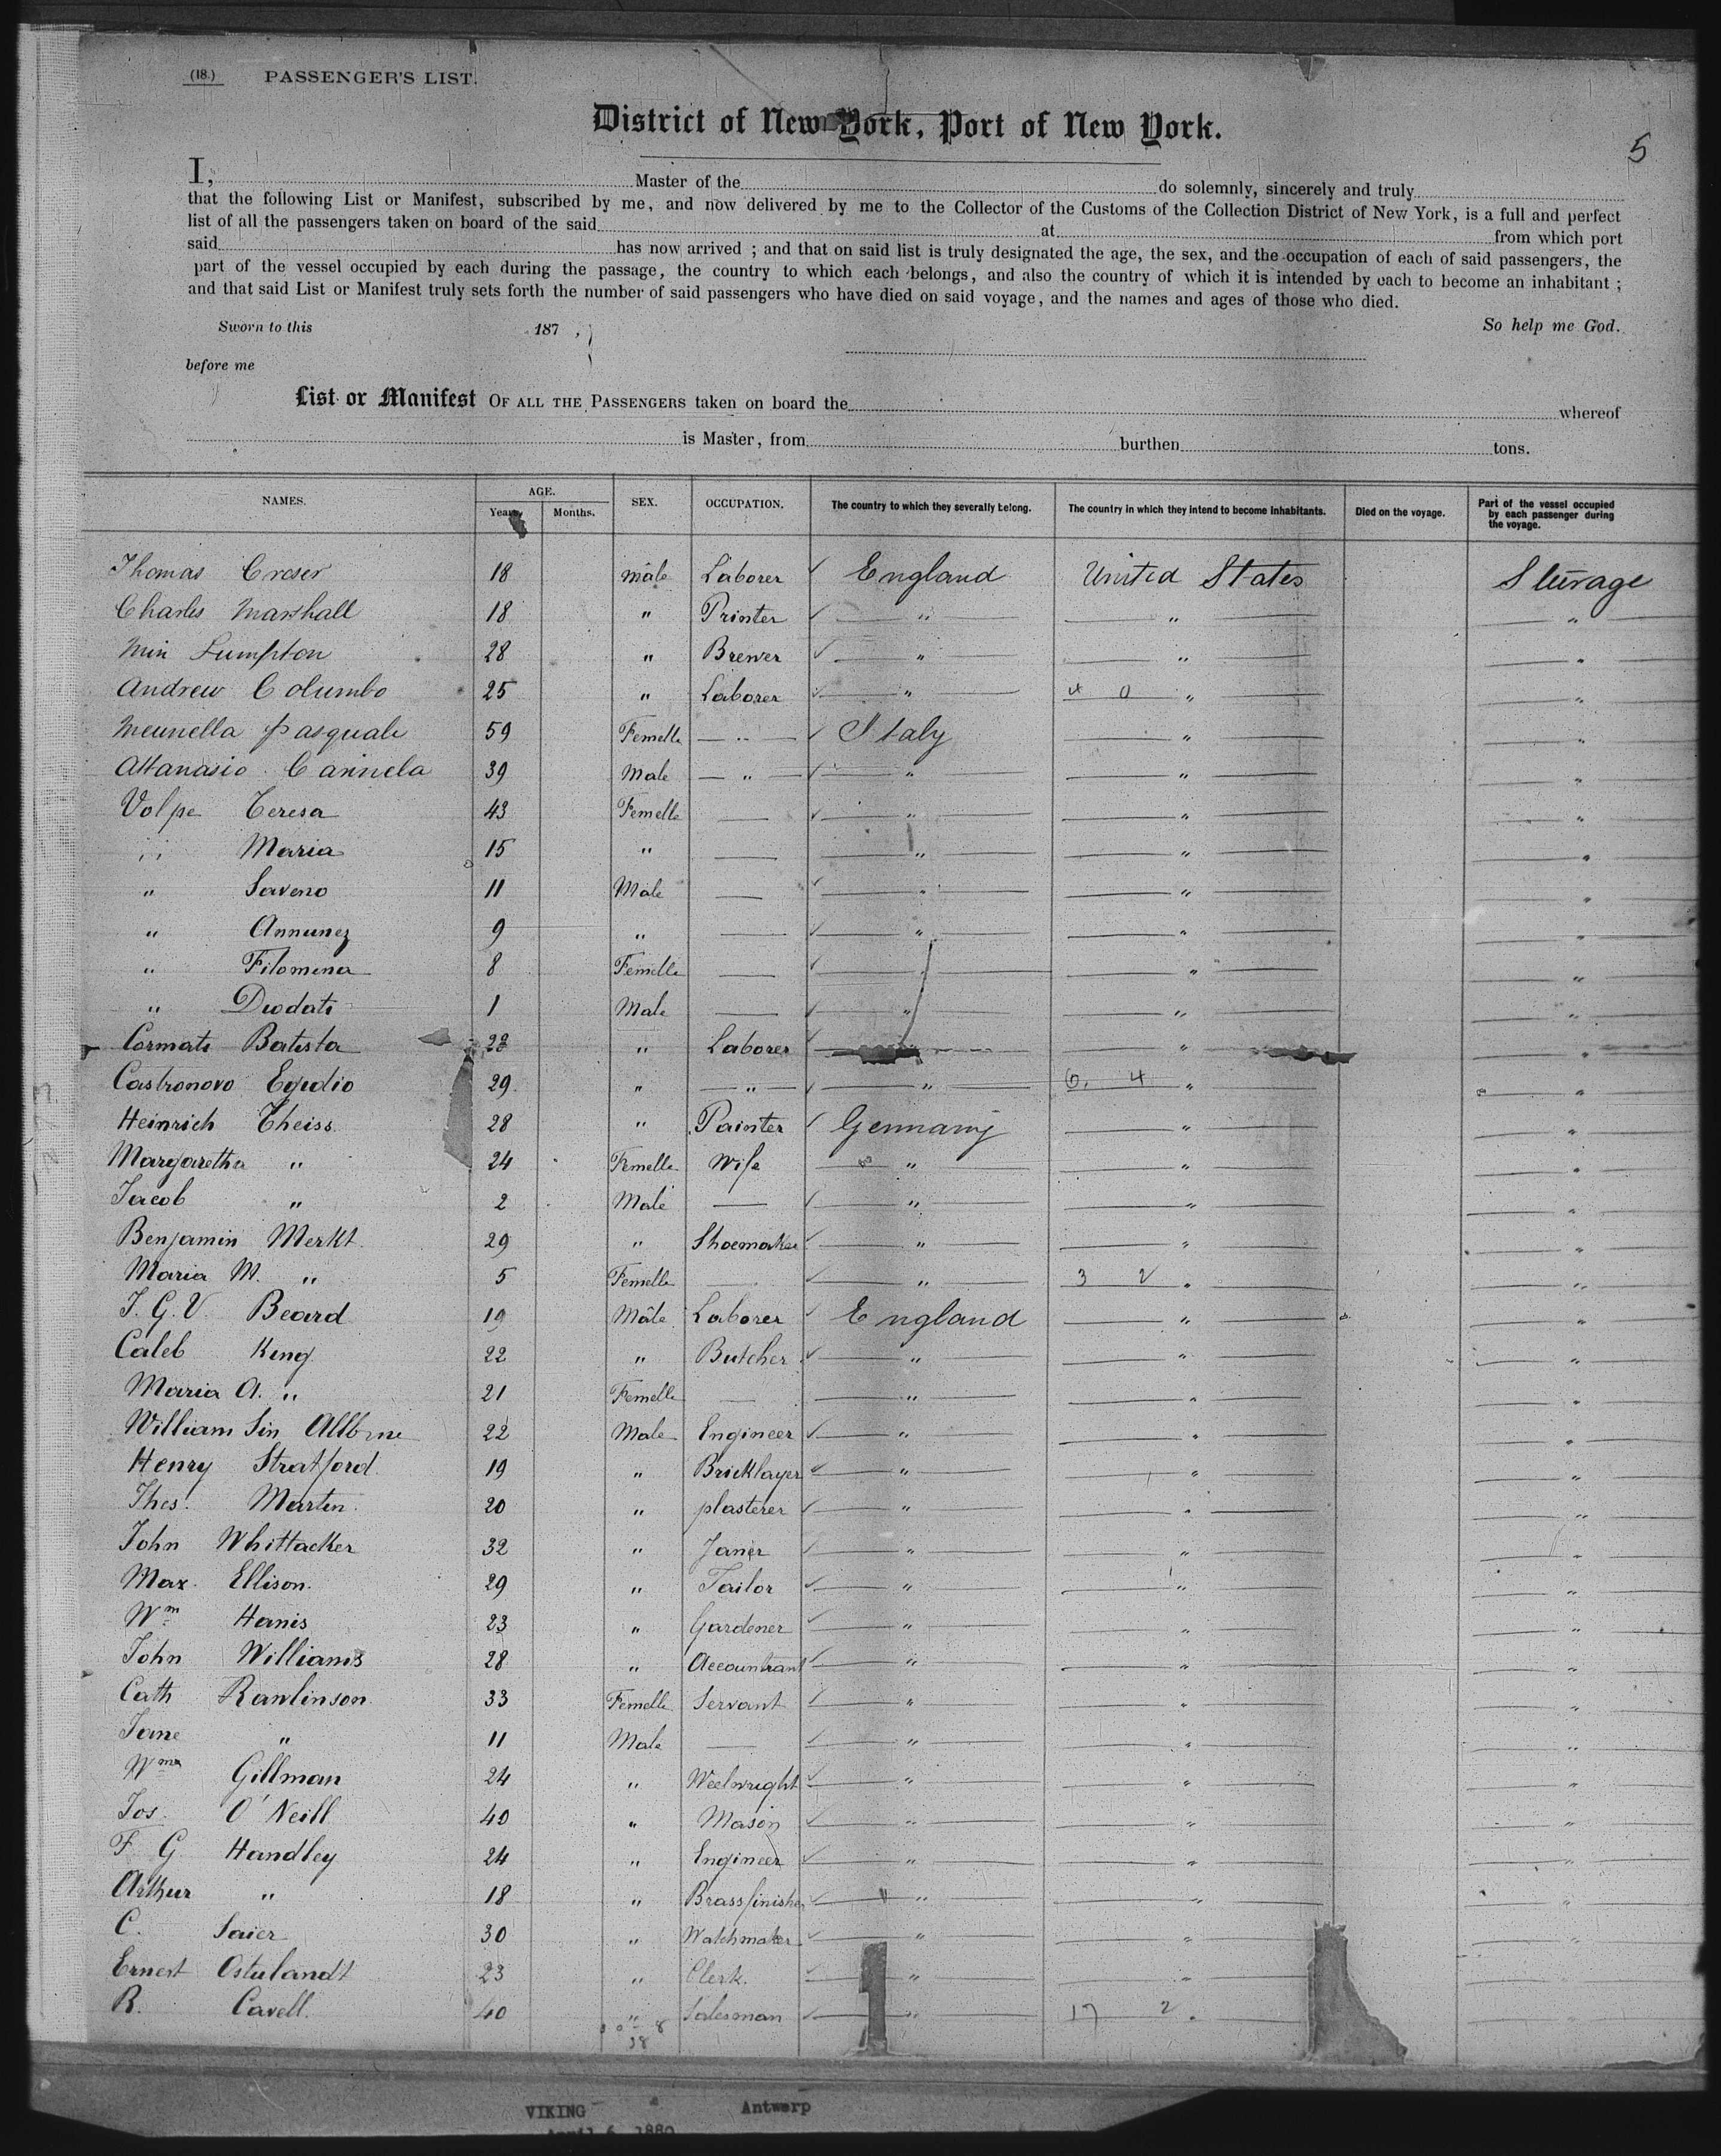 (18.) PASSENGER'S LIST.
District of New York, Port of New York.
5
I, Master of the do solemnly, sincerely and truly
that the following List or Manifest, subscribed by me, and now delivered by me to the Collector of the Customs of the Collection District of New York, is a full and perfect
list of all the passengers taken on board of the said at from which port
said has now arrived ; and that on said list is truly designated the age, the sex, and the occupation of each of said passengers, the
part of the vessel occupied by each during the passage, the country to which each belongs, and also the country of which it is intended by each to become an inhabitant ;
and that said List or Manifest truly sets forth the number of said passengers who have died on said voyage, and the names and ages of those who died.
Sworn to this 187 , So help me God.
before me
List or Manifest OF ALL THE PASSENGERS taken on board the whereof
is Master, from burthen tons.
NAMES. AGE. Years. Months. SEX. OCCUPATION. The country to which they severally belong. The country in which they intend to become inhabitants. Died on the voyage. Part of the vessel occupied by each passenger during the voyage.
Thomas Croser 18 male Laborer England United States Steurage
Charles Marshall 18 " Printer " " "
Min Lumpton 28 " Brewer " " "
Andrew Columbo 25 " Laborer " 4 0 " "
Meunella Pasquale 59 Femelle " Italy " "
Attanasio Cannela 39 Male " " " "
Volpe Teresa 43 Femelle — " " "
" Maria 15 " — " " "
" Saveno 11 Male — " " "
" Annunez 9 " — " " "
" Filomena 8 Femelle — " " "
" Diodati 1 Male — " " "
Cormati Batista 28 " Laborer " "
Castronovo Egidio 29 " " " 6. 4 " "
Heinrich Theiss 28 " Painter Germany " "
Margaretha " 24 Femelle Wife " " "
Jacob " 2 Male — " " "
Benjamin Merkt 29 " Shoemaker " " "
Maria M. " 5 Femelle — " 3 2 " "
J. G. V. Beard 19 Male Laborer England " "
Caleb King 22 " Butcher " " "
Maria A. " 21 Femelle — " " "
William Sin Allbrne 22 Male Engineer " " "
Henry Stratford 19 " Bricklayer " " "
Thos. Martin 20 " plasterer " " "
John Whittacker 32 " Janer " " "
Max Ellison 29 " Tailor " " "
Wm Hanis 23 " Gardener " " "
John Williams 28 " Accountrant " " "
Cath Rawlinson 33 Femelle Servant " " "
Jane " 11 Male — " " "
Wm Gillman 24 " Weelwright " " "
Jos. O'Neill 40 " Mason " " "
F G Handley 24 " Engineer " " "
Arthur " 18 " Brassfinisher " " "
C. Saier 30 " Watchmaker " " "
Ernest Ostulandt 23 " Clerk. " " "
R. Cavell 40 " Salesman " 17 2 " "
38
VIKING Antwerp
April 6, 1880